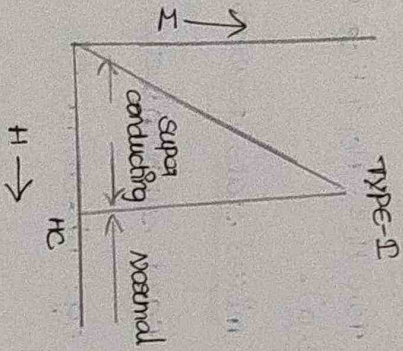 TYPE-I
M →
Super
conducting
Normal
HC
H →